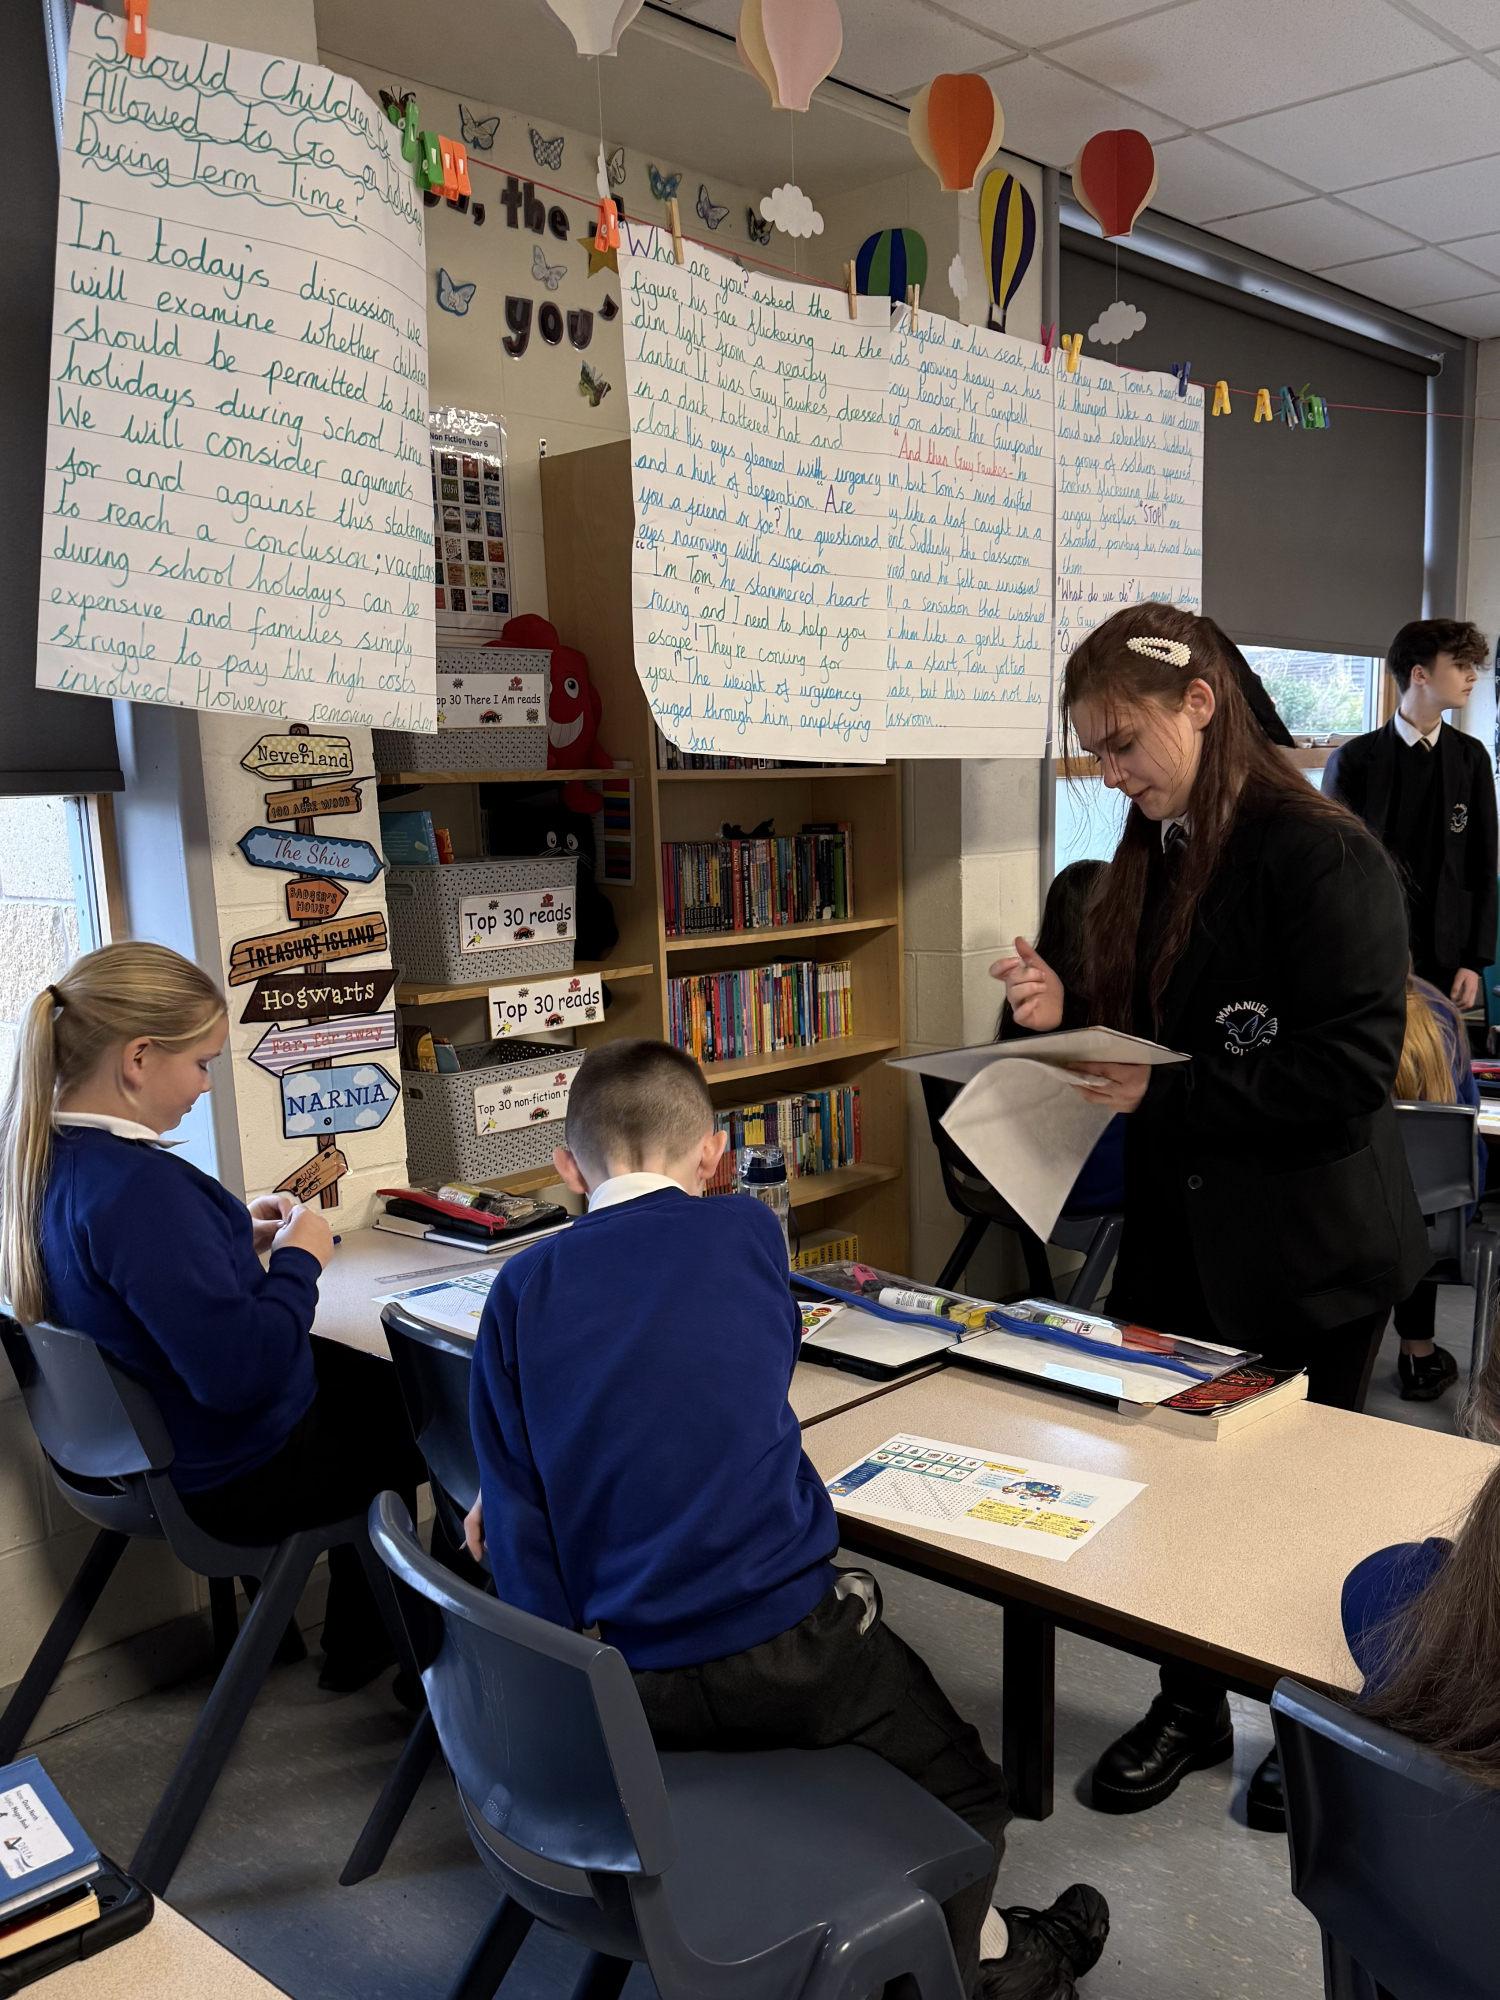 Should Children Be
Allowed to Go on holiday
During Term Time?
In today's discussion, we
will examine whether children
should be permitted to take
holidays during school time
We will consider arguments
for and against this statement
to reach a conclusion; vacations
during school holidays can be
expensive and families simply
struggle to pay the high costs
involved. However, removing children
the
you'
Non Fiction Year 6
"Who are you?" asked the
figure, his face flickering in the
dim light from a nearby
lantern. It was Guy Fawkes, dressed
in a dark tattered hat and
cloak. His eyes gleamed with urgency
and a hint of desperation. "Are
you a friend or foe?" he questioned,
eyes narrowing with suspicion.
"I'm Tom," he stammered, heart
racing, "and I need to help you
escape! They're coming for
you!" The weight of urgency
surged through him, amplifying
fear.
fidgeted in his seat, his
growing heavy as his
teacher, Mr Campbell
on about the Gunpowder
"And then Guy Fawkes-" he
but Tom's mind drifted
like a leaf caught in a
Suddenly, the classroom
and he felt an unusual
a sensation that washed
him like a gentle tide
a start, Tom jolted
awake, but this was not his
classroom...
As they ran Tom's heart raced
it thumped like a war drum
loud and relentless. Suddenly
a group of soldiers appeared,
torches flickering like
angry fireflies. "STOP!"
shouted, pointing his sword towards
them
"What do we do?" he
to Guy
Top 30 There I Am reads
Top 30 reads
Top 30 reads
Top 30 non-fiction
Neverland
100 ACRE WOOD
The Shire
BADGER'S
HOUSE
TREASURE ISLAND
Hogwarts
Far, far away
NARNIA
IMMANUEL
COLLEGE
DELTA